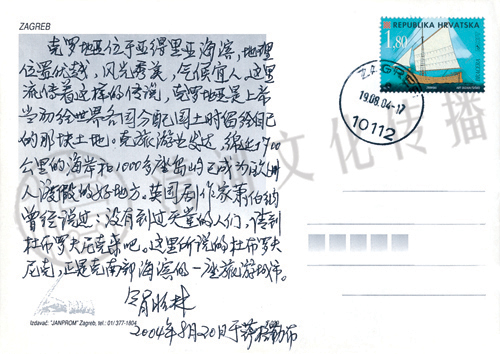 ZAGREB
克罗地亚位于亚得里亚海滨，地理
位置优越，风光秀美，气候宜人。这里
流传着这样的传说，克罗地亚是上帝
当初给世界各国分配国土时留给自己
的那块土地。克旅游业发达，绵延1700
公里的海岸和1000多座岛屿已成为欧洲
人渡假的好地方。英国剧作家萧伯纳
曾经说过：没有到过天堂的人们，请到
杜布罗夫尼克来吧。这里所说的杜布罗夫
尼克，正是克南部海滨的一座旅游城市。
2004年8月20日于萨格勒布
Izdavač: "JANPROM" Zagreb, tel.: 01/ 377-1804
REPUBLIKA HRVATSKA
1.80
ZAGREB
19.08.04-17
10112
文化传播